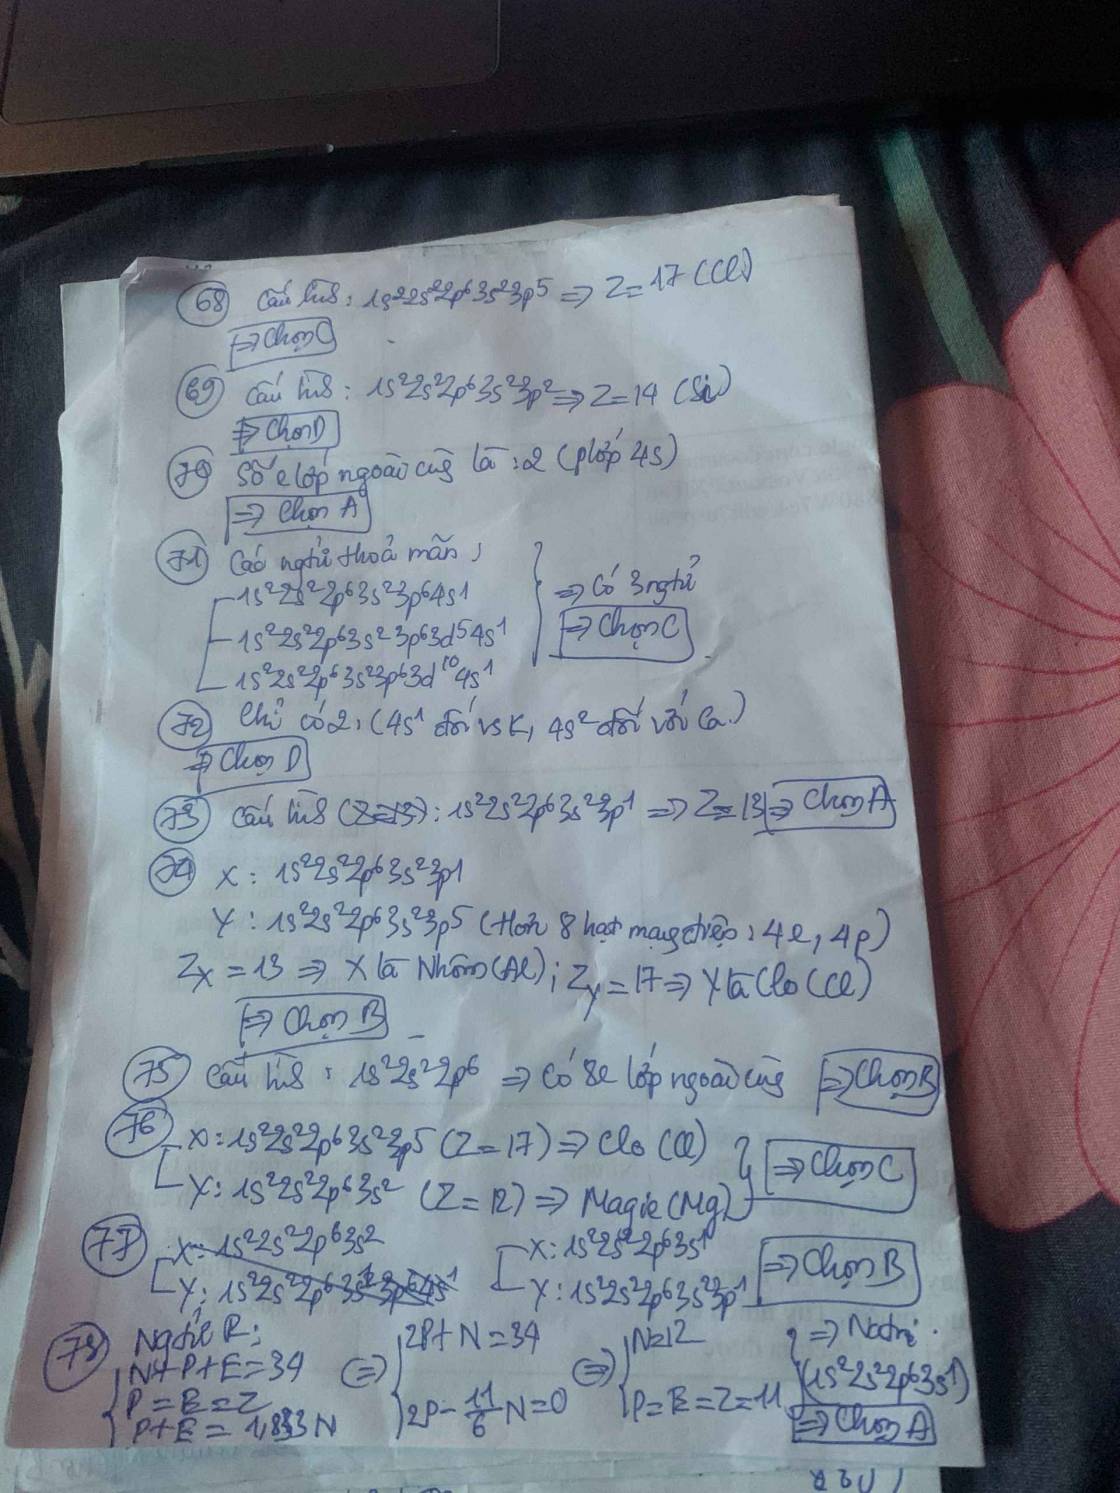 68 Cấu hình: 1s²2s²2p⁶3s²3p⁵ => Z=17 (Cl)
=> Chọn C
69 Cấu hình: 1s²2s²2p⁶3s²3p² => Z=14 (Si)
=> Chọn D
70 Số e lớp ngoài cùng là: 2 (plớp 4s)
=> Chọn A
71 Các ngtử thoả mãn:
1s²2s²2p⁶3s²3p⁶4s¹
=> Có 3 ngtử
1s²2s²2p⁶3s²3p⁶3d⁵4s¹
=> Chọn C
1s²2s²2p⁶3s²3p⁶3d¹⁰4s¹
72 Chỉ có 2, (4s¹ đối vs K, 4s² đối với Ca.)
=> Chọn D
73 Cấu hình (Z=13): 1s²2s²2p⁶3s²3p¹ => Z=13 => Chọn A
74 X: 1s²2s²2p⁶3s²3p1
Y: 1s²2s²2p⁶3s²3p⁵ (Hơn 8 hạt mang điện: 4e, 4p)
Zx = 13 => X là Nhôm (Al); Zy = 17 => Y là Clo (Cl)
=> Chọn B
75 Cấu hình: 1s²2s²2p⁶ => Có 8e lớp ngoài cùng => Chọn B
76 X: 1s²2s²2p⁶3s²3p⁵ (Z=17) => Clo (Cl)
=> Chọn C
Y: 1s²2s²2p⁶3s² (Z=12) => Magie (Mg)
77 X: 1s²2s²2p⁶3s² X: 1s²2s²2p⁶3s¹
Y: 1s²2s²2p⁶3s²3p⁶4s¹ Y: 1s²2s²2p⁶3s²3p¹ => Chọn B
78 Ngtử R:
N+P+E=34 <=> 2P+N=34 <=> N=12 => Natri.
P=E=Z 2P-11/6N=0 P=E=Z=11 (1s²2s²2p⁶3s¹)
P+E=1,833N => Chọn A